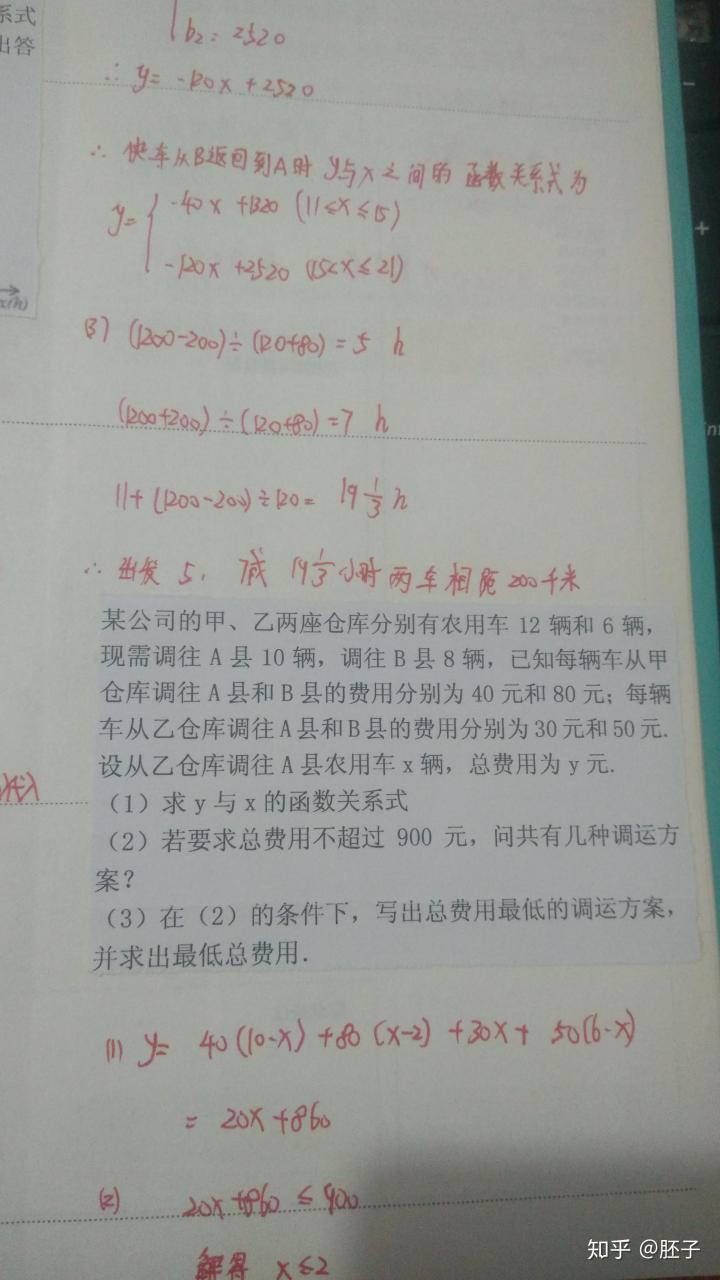 系式
出答
b₂=2520
∴ y= -120x +2520
∴ 快车从B返回到A时 y与x之间的函数关系式为
y={ -40x +1320 (11≤x≤15)
-120x +2520 (15<x≤21)
x(h)
(3) (1200-200)÷(120+80)=5 h
(1200+200)÷(120+80)=7 h
11+(1200-200)÷120= 19⅓ h
∴ 出发 5, 7或 19⅓小时 两车相距 200千米
某公司的甲、乙两座仓库分别有农用车 12 辆和 6 辆,
现需调往 A 县 10 辆，调往 B 县 8 辆，已知每辆车从甲
仓库调往 A 县和 B 县的费用分别为 40 元和 80 元；每辆
车从乙仓库调往 A 县和 B 县的费用分别为 30 元和 50 元.
设从乙仓库调往 A 县农用车 x 辆，总费用为 y 元.
（1）求 y 与 x 的函数关系式
（2）若要求总费用不超过 900 元，问共有几种调运方
案？
（3）在（2）的条件下，写出总费用最低的调运方案，
并求出最低总费用.
(1) y= 40(10-x) +80(x-2) +30x+ 50(6-x)
= 20x+860
(2) 20x+860 ≤ 900
解得 x≤2
知乎 @胚子